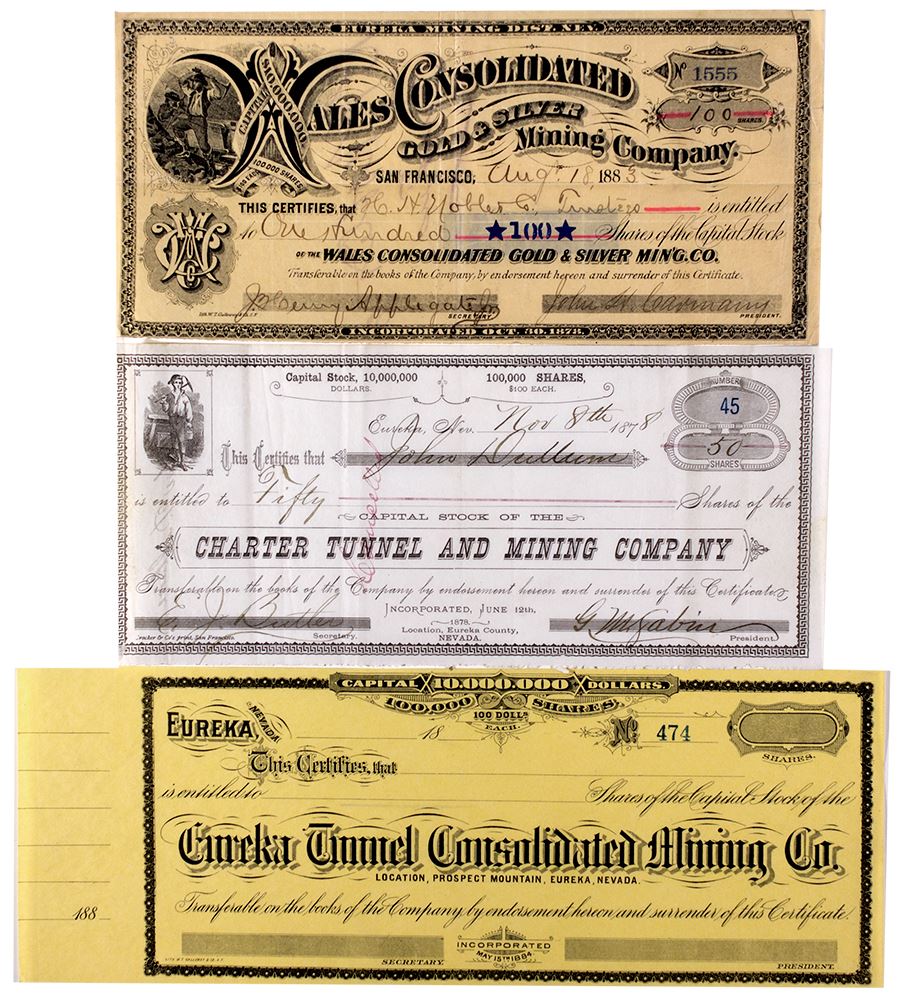 EUREKA MINING DIST. NEV.
WALES CONSOLIDATED
GOLD & SILVER
Mining Company.
CAPITAL $10,000,000
100,000 SHARES
$100 EACH
No 1555
100
SHARES.
SAN FRANCISCO, Aug. 18 1883
THIS CERTIFIES, that H. H. Noble & Co. Trustees is entitled
to One Hundred ★100★ Shares of the Capital Stock
OF THE WALES CONSOLIDATED GOLD & SILVER MIN'G. CO.
Transferable on the books of the Company, by endorsement hereon and surrender of this Certificate.
J. Henry Applegate Jr John W. Carmany
SECRETARY. PRESIDENT.
INCORPORATED OCT. 30. 1878.
Capital Stock, 10,000,000 100,000 SHARES,
DOLLARS. $100 EACH.
NUMBER
45
50
SHARES
Eureka, Nev. Nov 8th 1878
This Certifies that John Dullum
is entitled to Fifty Shares of the
CAPITAL STOCK OF THE
CHARTER TUNNEL AND MINING COMPANY
Transferable on the books of the Company by endorsement hereon and surrender of this Certificate
Cancelled
INCORPORATED, JUNE 12th,
1878.
Location, Eureka County,
NEVADA.
E. J. Butler
Secretary. President.
CAPITAL 10.000.000 DOLLARS.
100,000 SHARES.
100 DOLLS
EACH.
EUREKA NEVADA 18
No. 474
SHARES.
This Certifies, that
is entitled to Shares of the Capital Stock of the
Eureka Tunnel Consolidated Mining Co.
LOCATION, PROSPECT MOUNTAIN, EUREKA, NEVADA.
188
Transferable on the books of the Company by endorsement hereon and surrender of this Certificate.
INCORPORATED
MAY 15TH 1884.
SECRETARY. PRESIDENT.